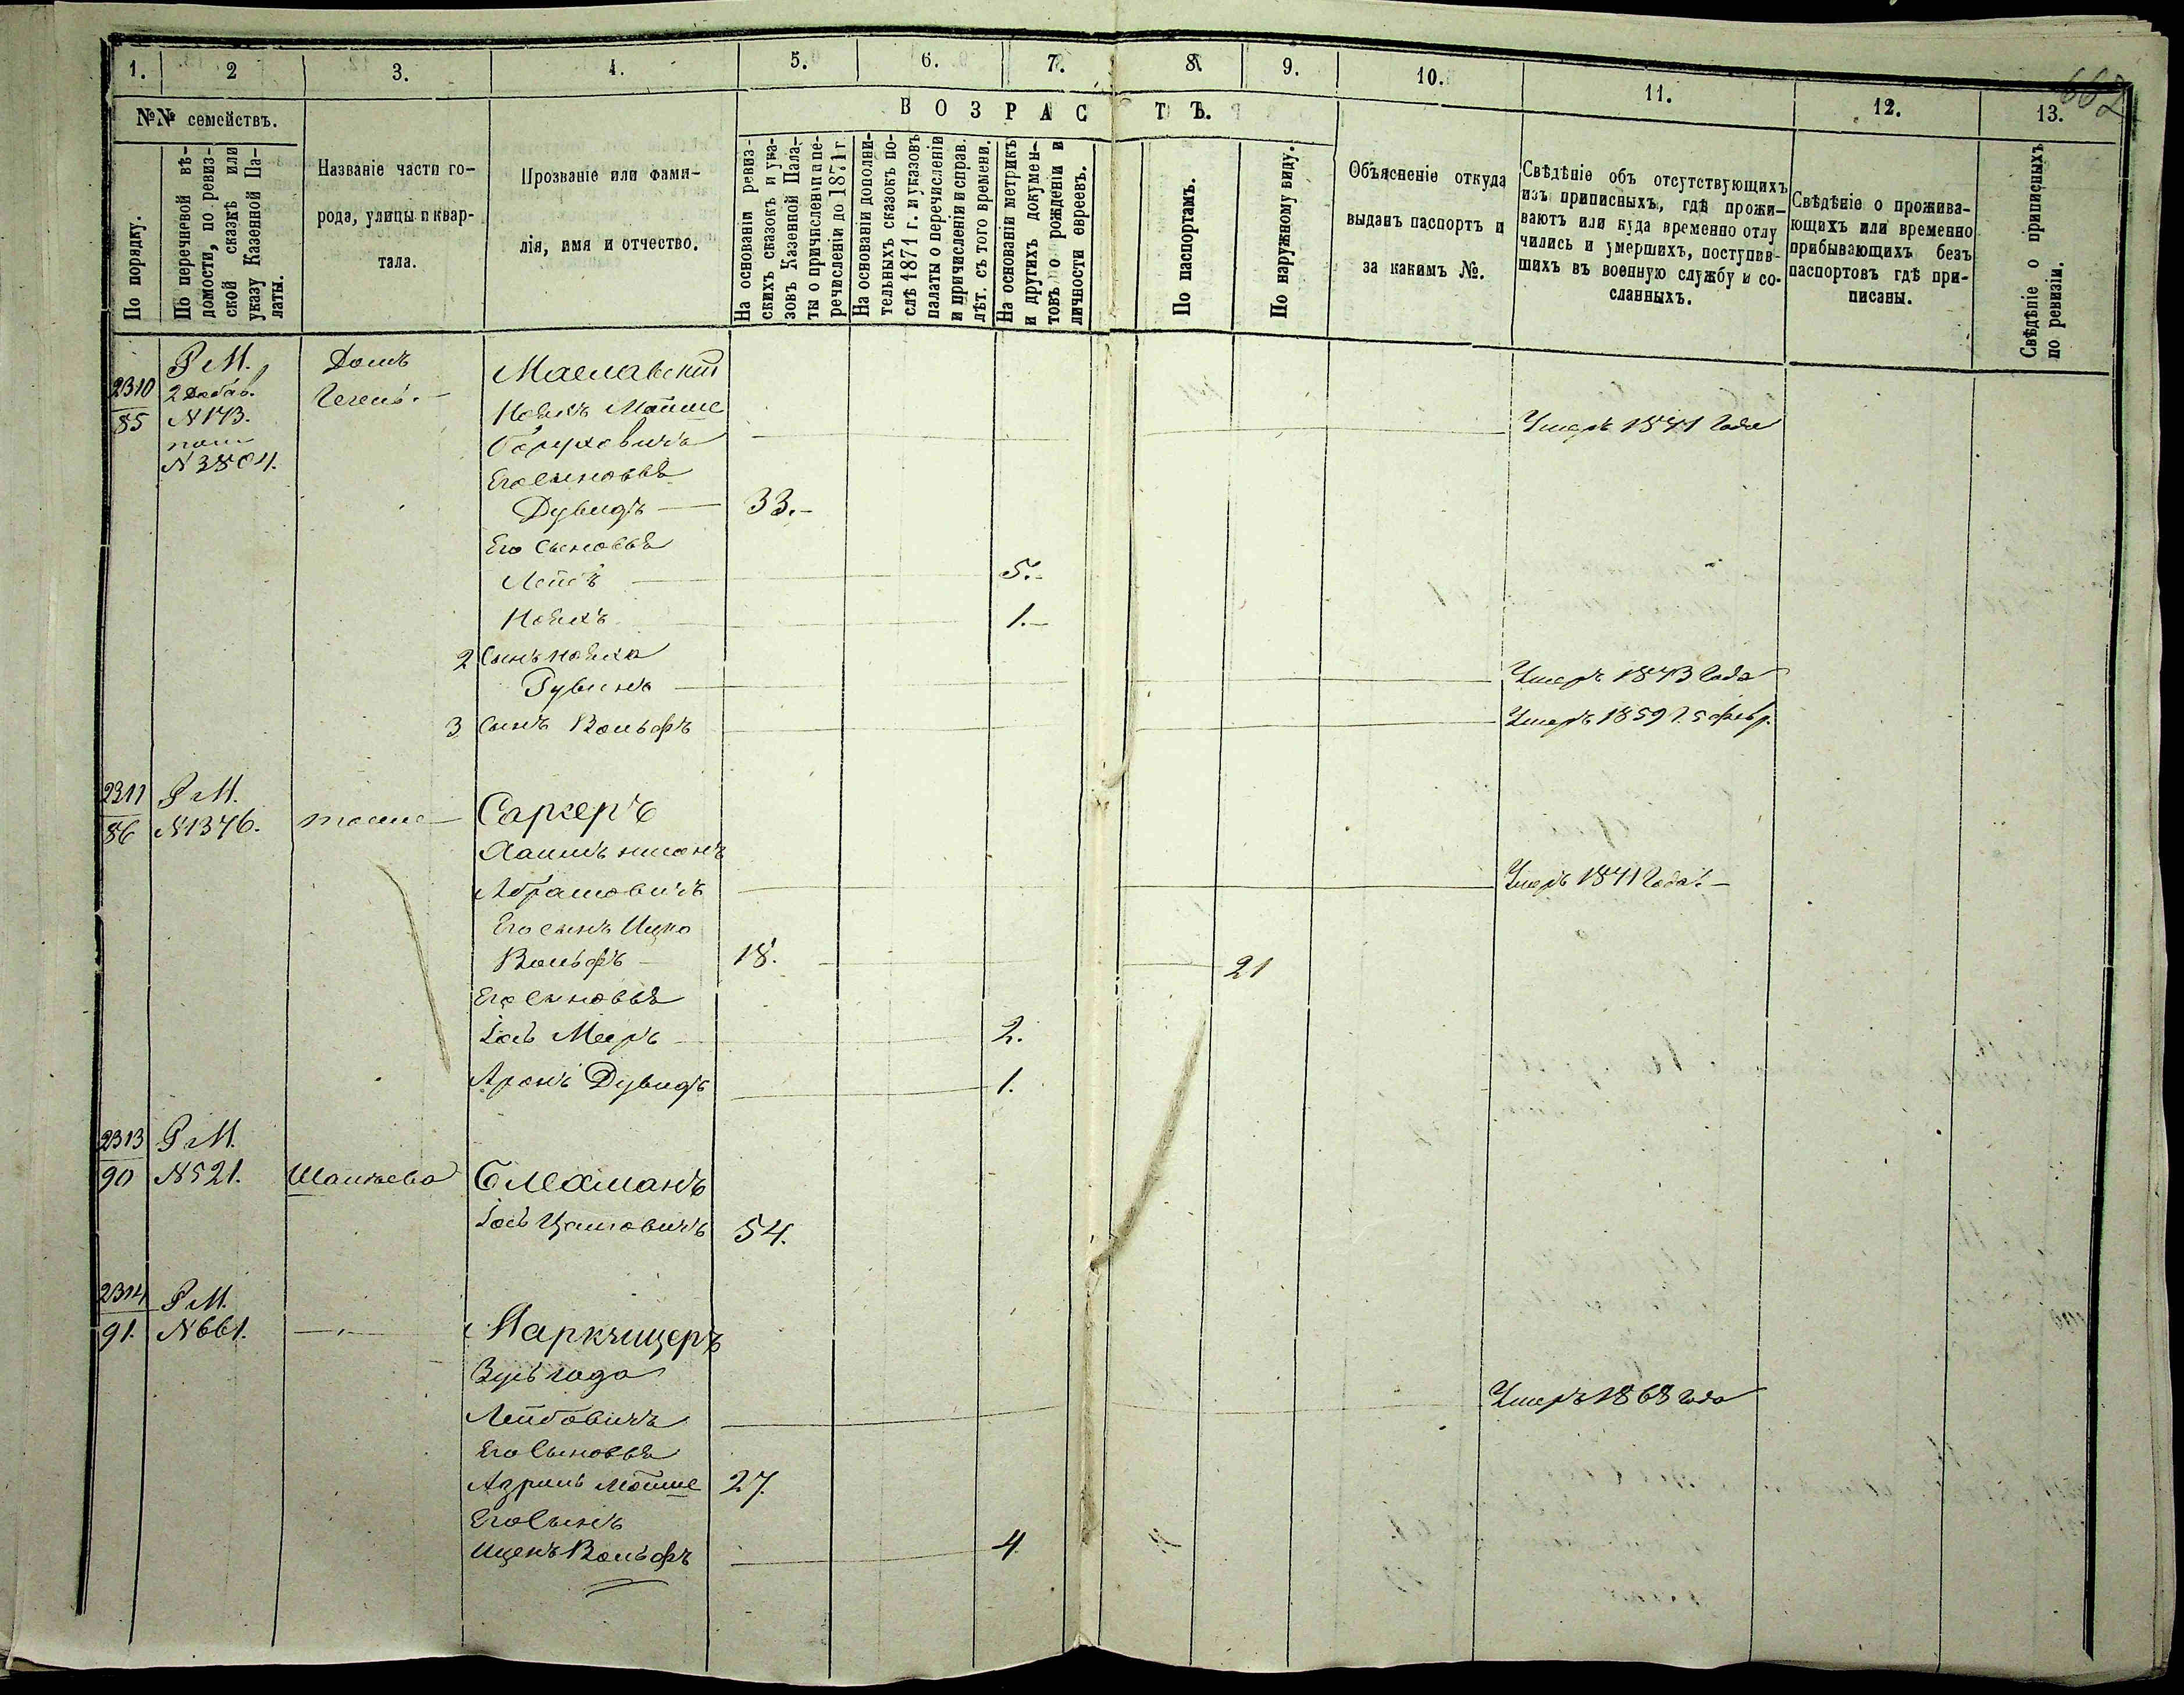 662
1. 2 3. 4. 5. 6. 7. 8. 9. 10. 11. 12. 13.
№№ семействъ.
По порядку.
По перечневой вѣ-
домости, по ревиз-
ской сказкѣ или
указу Казенной Па-
латы.
Названіе части го-
рода, улицы и квар-
тала.
Прозваніе или фами-
лія, имя и отчество.
ВОЗРАСТЪ.
На основаніи ревиз-
скихъ сказокъ и ука-
зовъ Казенной Пала-
ты о причисленіи и пе-
речисленіи до 1871 г.
На основаніи дополни-
тельныхъ сказокъ по-
слѣ 1871 г. и указовъ
палаты о перечисленіи
и причисленіи и справ.
лѣт. съ того времени.
На основаніи метрикъ
и другихъ докумен-
товъ о рожденіи и
личности евреевъ.
По паспортамъ.
По наружному виду.
Объясненіе откуда
выданъ паспортъ и
за какимъ №.
Свѣдѣніе объ отсутствующихъ
изъ приписныхъ, гдѣ прожи-
ваютъ или куда временно отлу
чились и умершихъ, поступив-
шихъ въ военную службу и со-
сланныхъ.
Свѣдѣніе о прожива-
ющихъ или временно
прибывающихъ безъ
паспортовъ гдѣ при-
писаны.
Свѣдѣніе о приписныхъ
по ревизіи.
Р М. Домъ Маславскій
2310 2 Добав.
85 N 173. Мойше
N 3804. Умеръ 1871 года
Его сыновья
Дувидъ 33.
Его сыновья
Лейбъ 5.
1.
2 Сынъ
Рувинъ Умеръ 1873 года
3 Сынъ Вольфъ Умеръ 1859 г. 5 февр.
2311 Р М.
86 N 1376. тоже Саркеръ
Хаимъ
Абрамовичъ Умеръ 1871 года.
Его сынъ Ицко
Вольфъ 18. 21
Его сыновья
Іось Меръ 2.
Аронъ Дувидъ 1.
2313 Р М.
90 N 521. Блехманъ
Іось 54.
2314 Р М.
91. N 661.
Лейбовичъ Умеръ 1868 года
Его сыновья
Азриль Мойше 27.
Его сынъ
Ицекъ Вольфъ 4